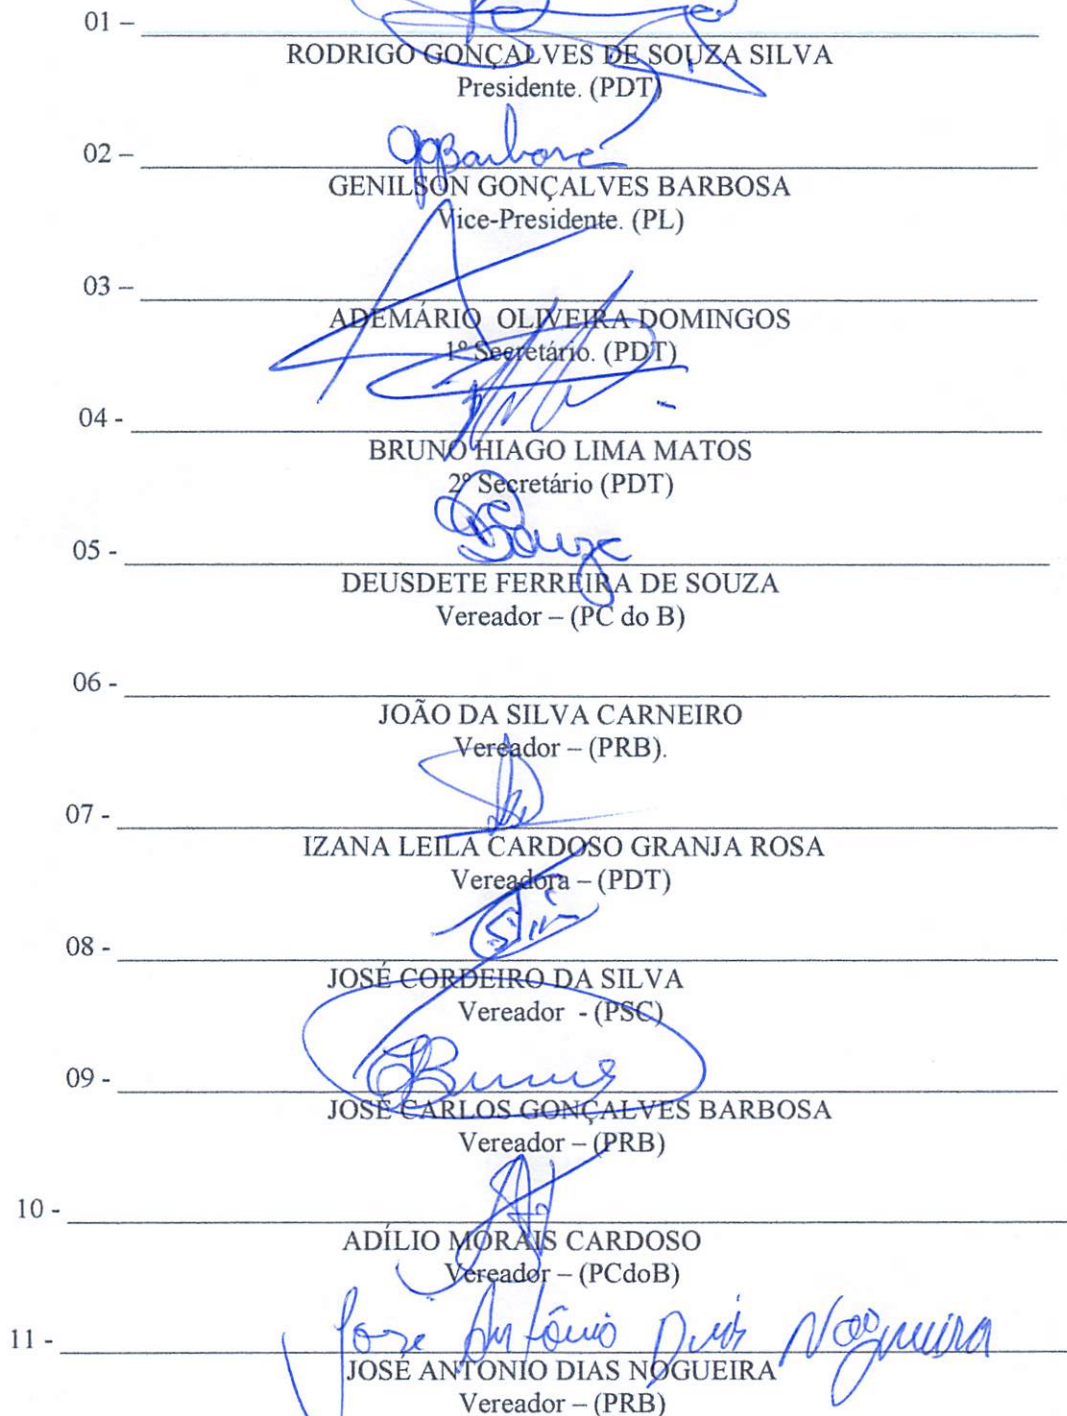 01 –
RODRIGO GONÇALVES DE SOUZA SILVA
Presidente. (PDT)
02 – Barbosa
GENILSON GONÇALVES BARBOSA
Vice-Presidente. (PL)
03 –
ADEMÁRIO OLIVEIRA DOMINGOS
1º Secretário. (PDT)
04 -
BRUNO HIAGO LIMA MATOS
2º Secretário (PDT)
05 - Souza
DEUSDETE FERREIRA DE SOUZA
Vereador – (PC do B)
06 -
JOÃO DA SILVA CARNEIRO
Vereador – (PRB).
07 -
IZANA LEILA CARDOSO GRANJA ROSA
Vereadora – (PDT)
08 -
JOSÉ CORDEIRO DA SILVA
Vereador - (PSC)
09 -
JOSÉ CARLOS GONÇALVES BARBOSA
Vereador – (PRB)
10 -
ADÍLIO MORAIS CARDOSO
Vereador – (PCdoB)
11 - Jose Antônio Dias Nogueira
JOSÉ ANTONIO DIAS NOGUEIRA
Vereador – (PRB)